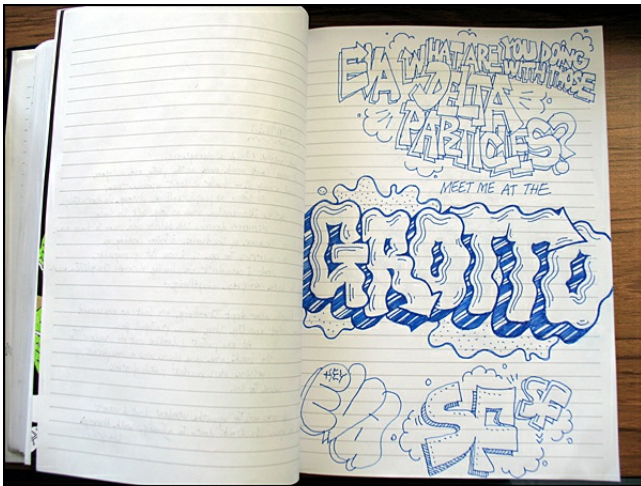 EVA WHAT ARE YOU DOING
WITH THOSE
DELTA
PARTICLES?
MEET ME AT THE
GROTTO
HEY
EVA
SF
SF